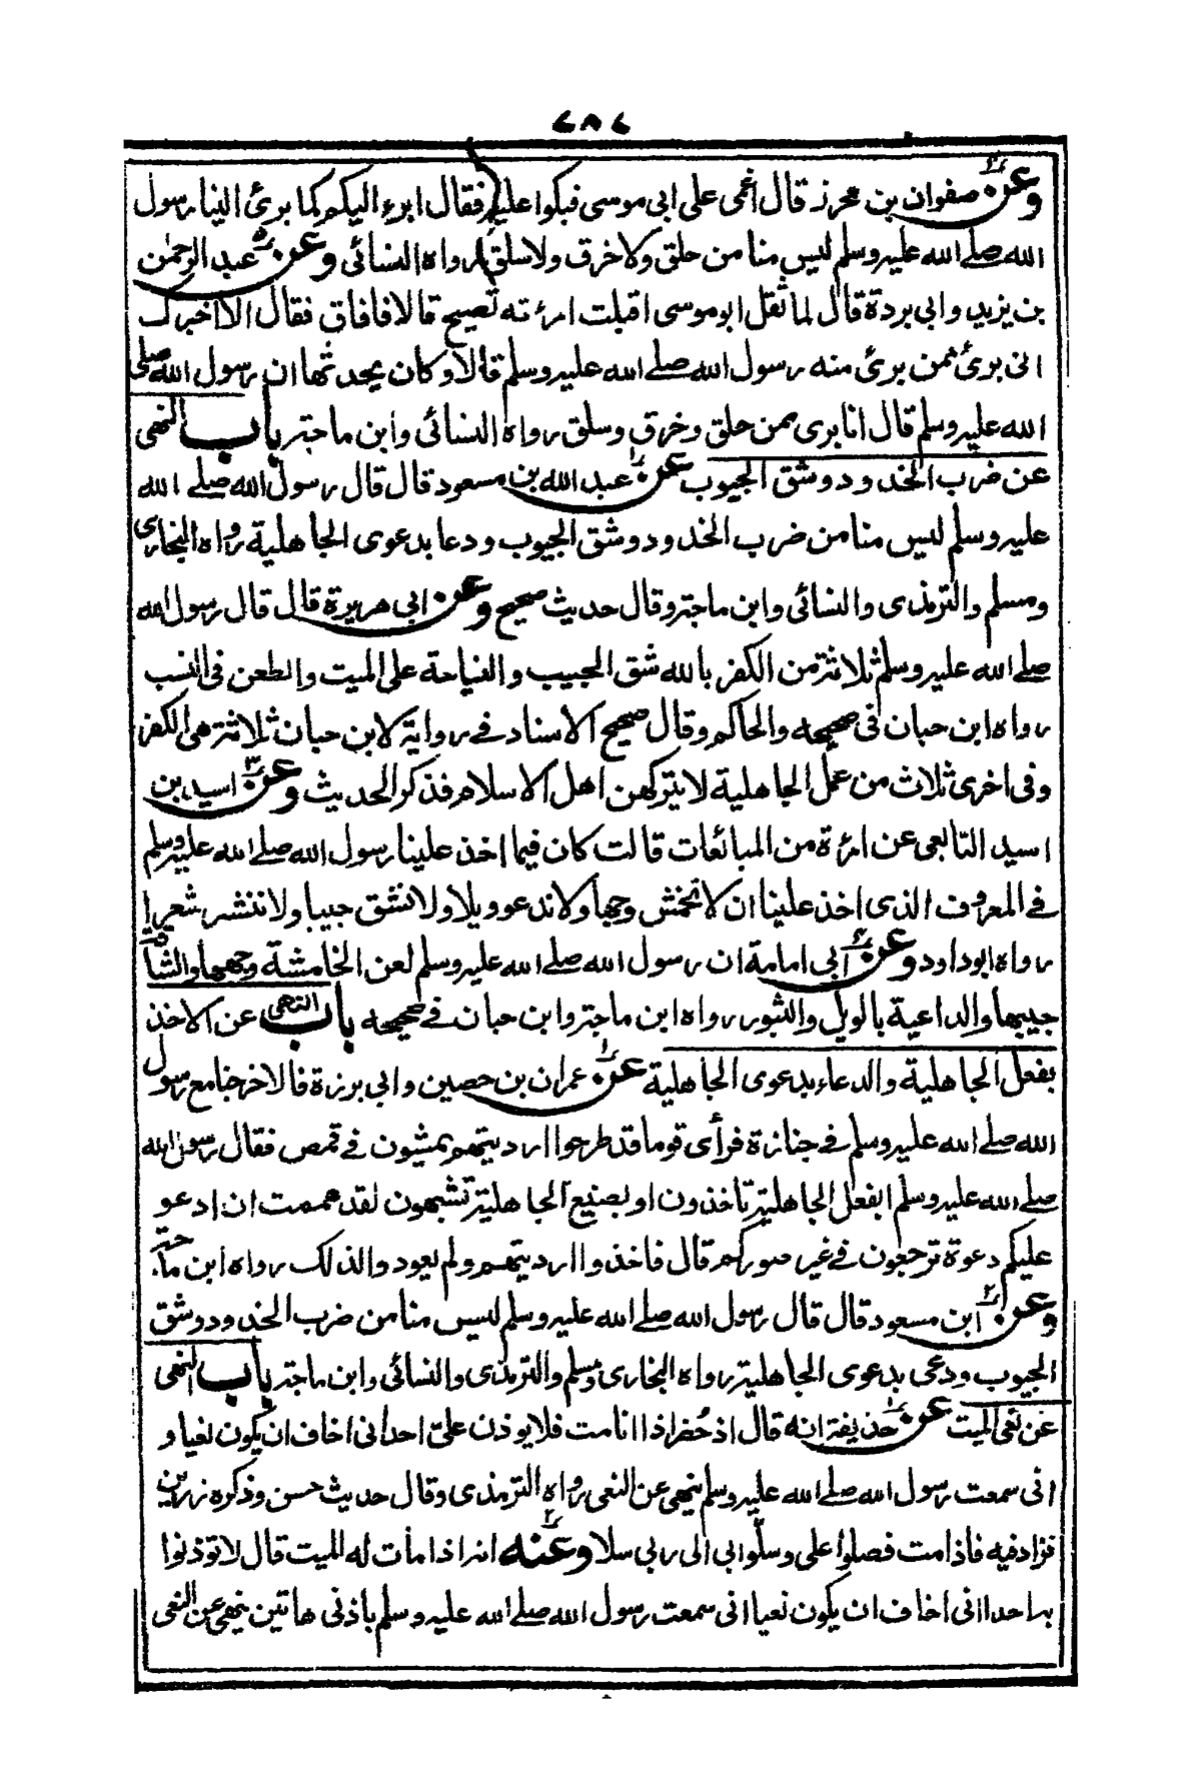 وعن صفوان بن محرز قال اغمى على ابى موسى فبكوا عليه فقال ابرء اليكم كما برئ الينا رسول
الله صلے الله عليه وسلم ليس منا من حلق ولا خرق ولا سلق رواه النسائى وعن عبد الرحمن
بن يزيد وابى بردة قال لما ثقل ابو موسى اقبلت امرءته تصيح قالا فافاق فقال الا اخبرك
انى برئ ممن برئ منه رسول الله صلے الله عليه وسلم قالا وكان يحدثها ان رسول الله صلى
الله عليه وسلم قال انا برى ممن حلق وخرق وسلق رواه النسائى وابن ماجة باب النهى
عن ضرب الخدود وشق الجيوب عن عبد الله بن مسعود قال قال رسول الله صلے الله
عليه وسلم ليس منا من ضرب الخدود وشق الجيوب ودعا بدعوى الجاهلية رواه البخارى
ومسلم والترمذى والنسائى وابن ماجة وقال حديث صحيح وعن ابى هريرة قال قال رسول الله
صلے الله عليه وسلم ثلاثة من الكفر بالله شق الجيب والنياحة على الميت والطعن فى النسب
رواه ابن حبان فى صحيحه والحاكم وقال صحيح الاسناد فے رواية لابن حبان ثلاثة هى الكفر
وفى اخرى ثلاث من عمل الجاهلية لا يتركهن اهل الاسلام فذكر الحديث وعن اسيد بن
اسيد التابعى عن امرءة من المبائعات قالت كان فيما اخذ علينا رسول الله صلے الله عليه وسلم
فے المعروف الذى اخذ علينا ان لا نخمش وجها ولا ندعو ويلا ولا نشق جيبا ولا ننشر شعرا
رواه ابو داود وعن ابى امامة ان رسول الله صلے الله عليه وسلم لعن الخامشة وجهها والشاقة
جيبها والداعية بالويل والثبور رواه ابن ماجة وابن حبان فے صحيحه باب النهى عن الاخذ
بفعل الجاهلية والدعاء بدعوى الجاهلية عن عمران بن حصين وابى برزة قالا خرجنا مع رسول
الله صلے الله عليه وسلم فے جنازة فرأى قوما قد طرحوا ارديتهم يمشيون فے قمص فقال رسول الله
صلے الله عليه وسلم ابفعل الجاهلية تاخذون او بصنيع الجاهلية تشبهون لقد هممت ان ادعو
عليكم دعوة ترجعون فے غير صوركم قال فاخذوا ارديتهم ولم يعودوا لذلك رواه ابن ماجة
وعن ابن مسعود قال قال رسول الله صلے الله عليه وسلم ليس منا من ضرب الخدود وشق
الجيوب ودعى بدعوى الجاهلية رواه البخارى ومسلم والترمذى والنسائى وابن ماجة باب النهى
عن نعى الميت عن حذيفة انه قال اذ حُضر اذا انا مت فلا يوذن علىّ احد انى اخاف ان يكون نعيا و
انى سمعت رسول الله صلے الله عليه وسلم ينهى عن النعى رواه الترمذى وقال حديث حسن وذكره رزين
فزاد فيه فاذا مت فصلوا على وسلّوا بى الى ربى سلا وعنه انه اذا مات له الميت قال لا توذنوا
به احدا انى اخاف ان يكون نعيا انى سمعت رسول الله صلے الله عليه وسلم باذنى هاتين ينهى عن النعى